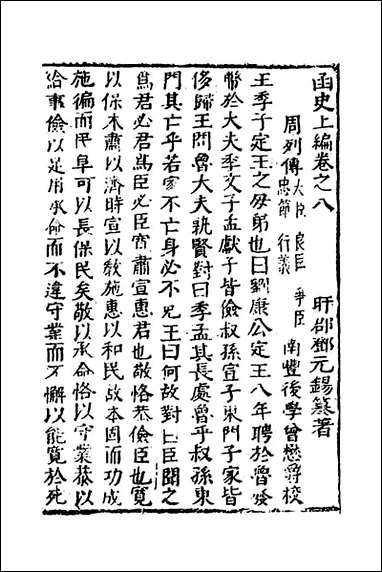 函史上編卷之八
盱郡鄧元錫纂著
周列傳大臣 良臣 爭臣 忠節 行義
南豐後學曾懋爵校
王季子定王之母弟也曰劉康公定王八年聘於魯發
幣於大夫季文子孟獻子皆儉叔孫宣子東門子家皆
侈歸王問魯大夫孰賢對曰季孟其長處魯乎叔孫東
門其亡乎若家不亡身必不免王曰何故對曰臣聞之
爲君必君爲臣必臣寬肅宣惠君也敬恪恭儉臣也寬
以保本肅以濟時宣以敎施惠以和民故本固而功成
施徧而民阜可以長保民矣敬以承命恪以守業恭以
給事儉以足用承命而不違守業而不懈以能寬於死